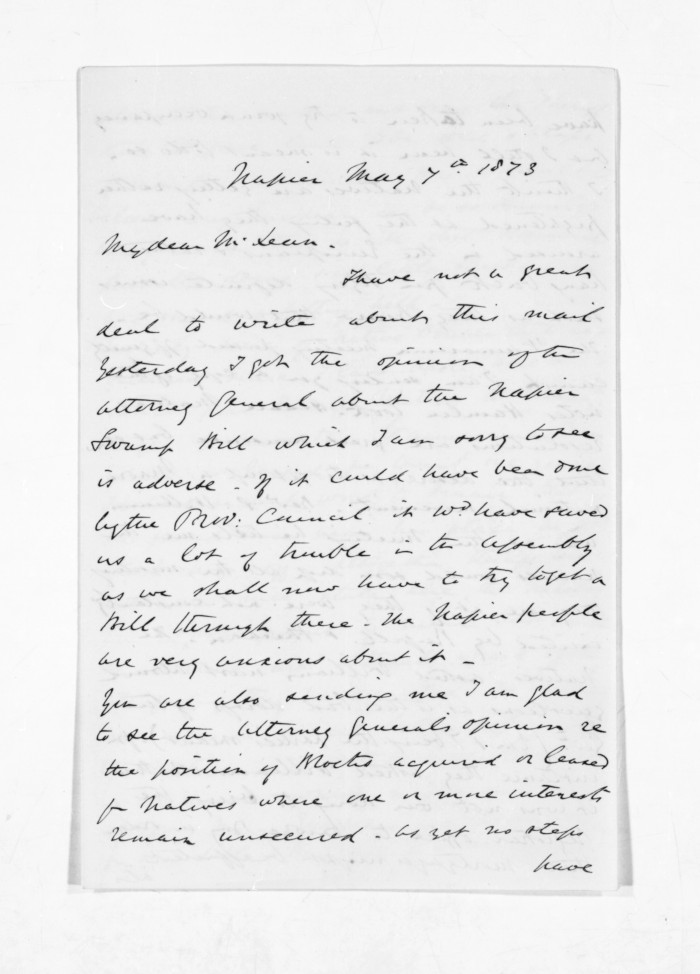 Napier May 7th 1873
My dear McLean.
I have not a great
deal to write about this mail
Yesterday I got the opinion of the
Attorney General about the Napier
Swamp Bill which I am sorry to see
is adverse. If it could have been done
by the Prov: Council it wd have saved
us a lot of trouble in the Assembly
as we shall now have to try to get a
Bill through there. The Napier people
are very anxious about it _
You are also sending me I am glad
to see the Attorney Generals opinion re
the position of Blocks acquired or leased
fr Natives where one or more interests
remain unsecured. As yet no steps
have